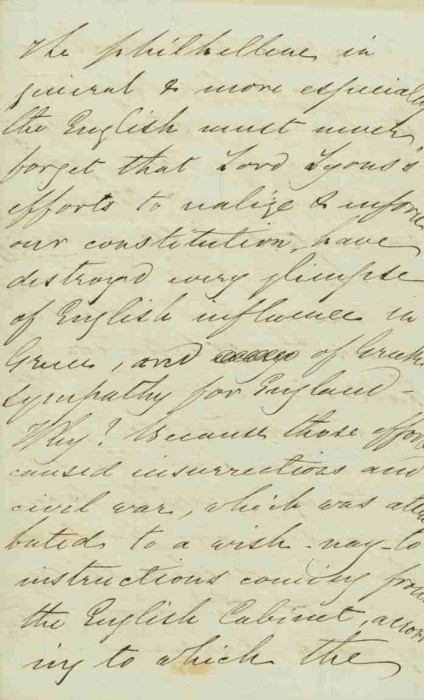 the philhellene in
general & more especially
the English must never
forget that Lord Lyons's
efforts to realize & enforce
our constitution, have
destroyed every glimpse
of English influence in
Greece, and of Greek
sympathy for England -
Why? Because those efforts
caused insurrections and
civil war, which was attri
buted to a wish - nay - to
instructions coming from
the English Cabinet, accord
ing to which the